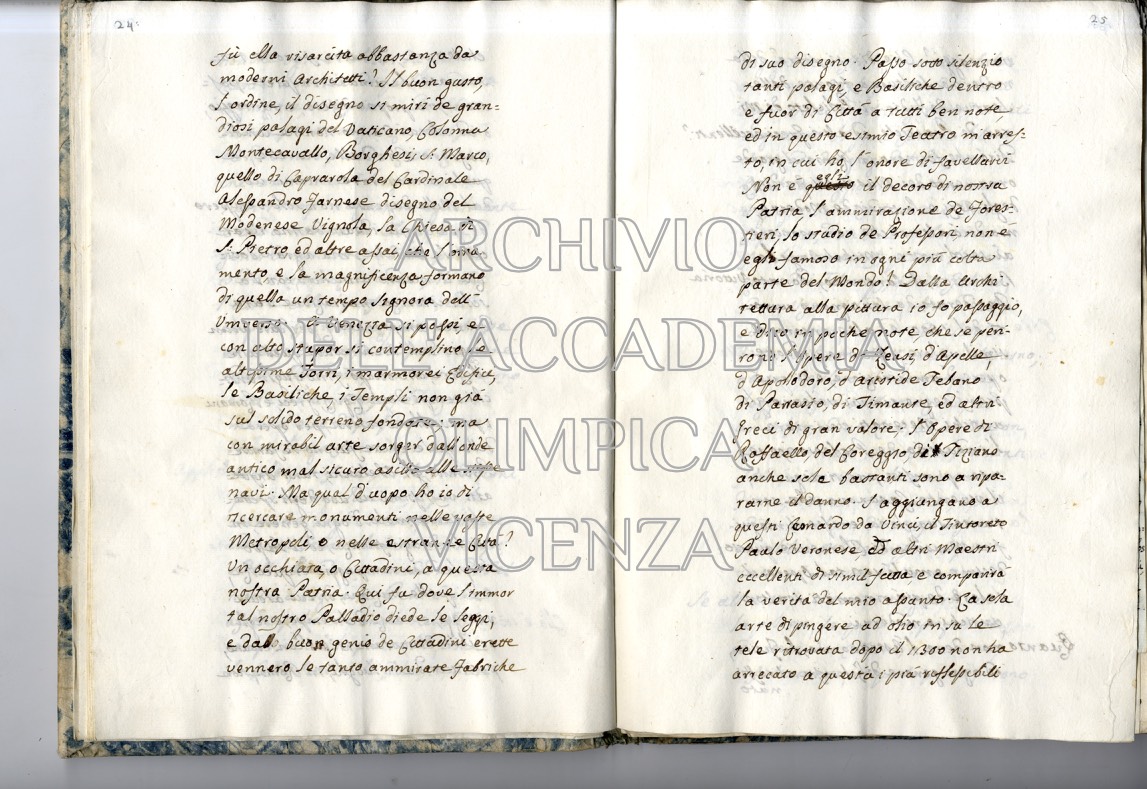 24.
fù ella risarcita abbastanza da
moderni Architetti? Il buon gusto,
l'ordine, il disegno si miri de gran=
diosi palagi del Vaticano, Colonna
Montecavallo, Borghesi, S. Marco,
quello di Caprarola del Cardinale
Alessandro Farnese disegno del
Modenese Vignola, la Chiesa di
S. Pietro ed altre assai che l'orna
mento, e la magnificenza formano
di quella un tempo Signora dell'
Universo. A Venezza si passi, e
con alto stupor si contemplino le
altissime Torri, i marmorei Edifici,
le Basiliche, i Templi non già
sul solido terreno fondate; ma
con mirabil arte sorger dall'onde
antico mal sicuro asilo alle
navi. Ma qual d'uopo ho io di
ricercare monumenti nelle vaste
Metropoli o nelle estranie Città?
Un occhiata, o Cittadini, a questa
nostra Patria. Qui fu dove l'immor
tal nostro Palladio diede le leggi,
e dallo buon genio de Cittadini erette
vennero le tanto ammirate fabriche
25
di suo disegno. Passo sotto silenzio
tanti palagi, e Basiliche dentro
e fuor di Città a tutti ben note,
ed in questo esimio Teatro m'arres=
to, in cui ho l'onore di favellarvi
Non è questo egli il decoro di nostra
Patria l'ammirazione de Fores=
tieri, lo studio de Professori, non è
egli famoso in ogni più colta
parte del Mondo? Dalla Archi
tettura alla pittura io fo passaggio,
e dico in poche note, che se peri-
rono l'Opere di Zeusi, d'Apelle,
d'Apolodoro, d'Aristide Tebano
di Parrasio, di Timante, ed altri
Greci di gran valore. l'Opere di
Raffaello, del Coreggio di Tiziano
anche sole bastanti sono a ripa=
rarne il danno. S'aggiungano a
questi Leonardo da Vinci, il Tintoreto
Paulo Veronese, ed altri Maestri
eccellenti di simil fatta e comparirà
la verità del mio assunto. La sola
arte di pingere ad olio in su le
tele ritrovata dopo il 1300 non ha
arrecato a questa i più riflessibili